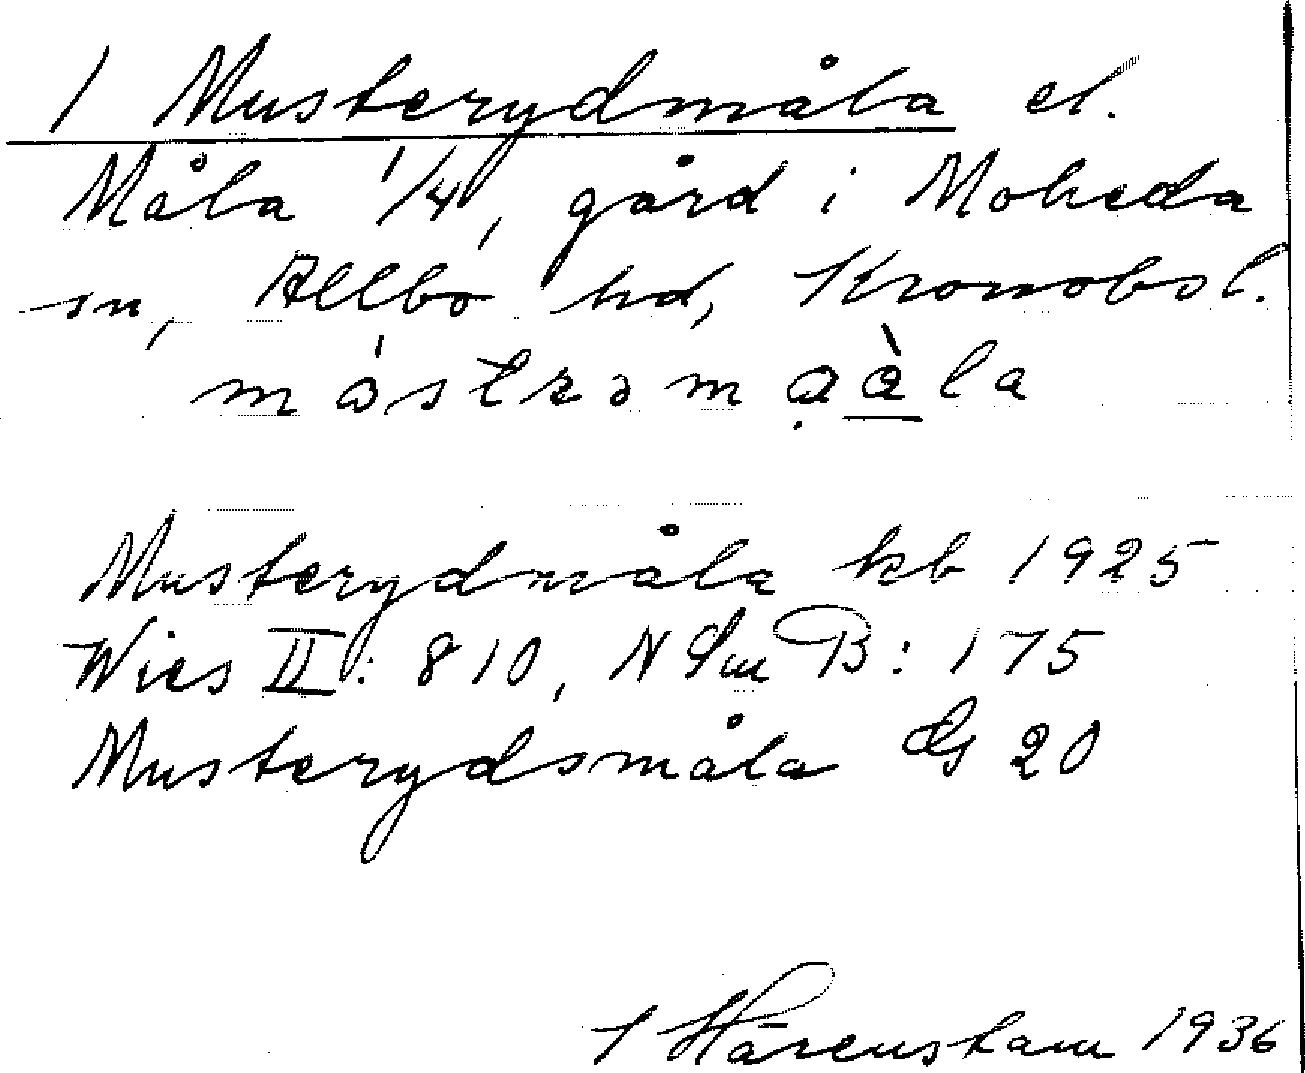 1 Musterydmåla el.
Måla 1/4, gård i Moheda
sn, Allbo hd, Kronobs l.
Musterydmåla kb 1925
Wies II: 810, N Sm B: 175
Musterydsmåla G 20
Härenstam 1936